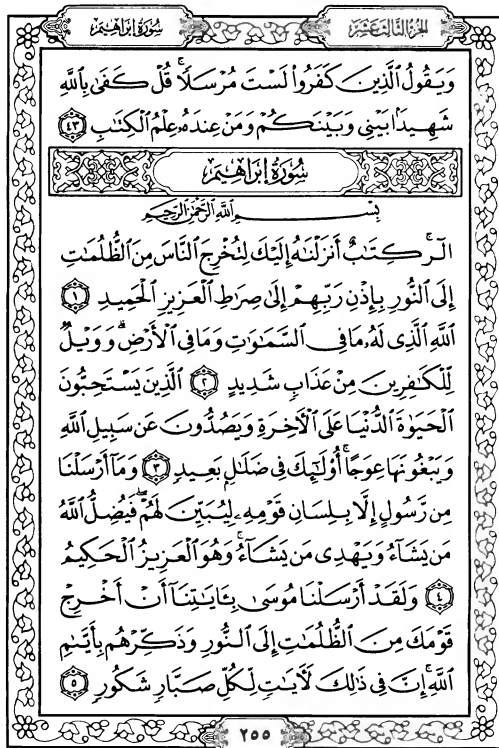 سُورَةُ إِبْرَاهِيمَ
الجُزءُ الثَّالِثَ عَشَرَ
وَيَقُولُ ٱلَّذِينَ كَفَرُواْ لَسْتَ مُرْسَلًاۚ قُلْ كَفَىٰ بِٱللَّهِ
شَهِيدَۢا بَيْنِي وَبَيْنَكُمْ وَمَنْ عِندَهُۥ عِلْمُ ٱلْكِتَٰبِ ٤٣
سُورَةُ إِبْرَاهِيمَ
بِسْمِ ٱللَّهِ ٱلرَّحْمَٰنِ ٱلرَّحِيمِ
الٓرۚ كِتَٰبٌ أَنزَلْنَٰهُ إِلَيْكَ لِتُخْرِجَ ٱلنَّاسَ مِنَ ٱلظُّلُمَٰتِ
إِلَى ٱلنُّورِ بِإِذْنِ رَبِّهِمْ إِلَىٰ صِرَٰطِ ٱلْعَزِيزِ ٱلْحَمِيدِ ١
ٱللَّهِ ٱلَّذِى لَهُۥ مَا فِى ٱلسَّمَٰوَٰتِ وَمَا فِى ٱلْأَرْضِۗ وَوَيْلٌ
لِّلْكَٰفِرِينَ مِنْ عَذَابٍ شَدِيدٍ ٢ ٱلَّذِينَ يَسْتَحِبُّونَ
ٱلْحَيَوٰةَ ٱلدُّنْيَا عَلَى ٱلْأَخِرَةِ وَيَصُدُّونَ عَن سَبِيلِ ٱللَّهِ
وَيَبْغُونَهَا عِوَجًاۚ أُوْلَٰٓئِكَ فِى ضَلَٰلٍۭ بَعِيدٍ ٣ وَمَآ أَرْسَلْنَا
مِن رَّسُولٍ إِلَّا بِلِسَانِ قَوْمِهِۦ لِيُبَيِّنَ لَهُمْۖ فَيُضِلُّ ٱللَّهُ
مَن يَشَآءُ وَيَهْدِى مَن يَشَآءُۚ وَهُوَ ٱلْعَزِيزُ ٱلْحَكِيمُ
٤ وَلَقَدْ أَرْسَلْنَا مُوسَىٰ بِـَٔايَٰتِنَآ أَنْ أَخْرِجْ
قَوْمَكَ مِنَ ٱلظُّلُمَٰتِ إِلَى ٱلنُّورِ وَذَكِّرْهُم بِأَيَّىٰمِ
ٱللَّهِۚ إِنَّ فِى ذَٰلِكَ لَأَيَٰتٍ لِّكُلِّ صَبَّارٍ شَكُورٍ ٥
٢٥٥